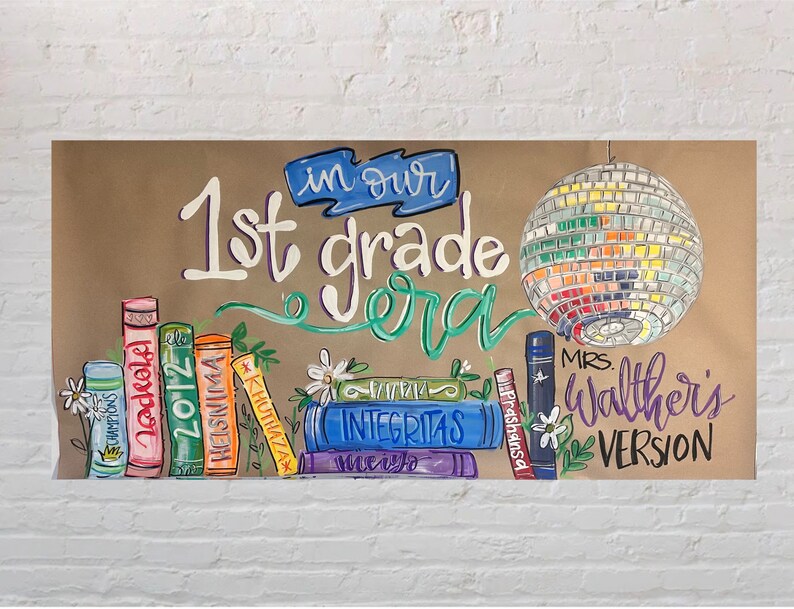 in our
1st grade
era
CHAMPIONS
ele
2012
HELSNIMA
KHUTHAZA
INTEGRITAS
meiyo
Prashansa
MRS.
Walther's
VERSION